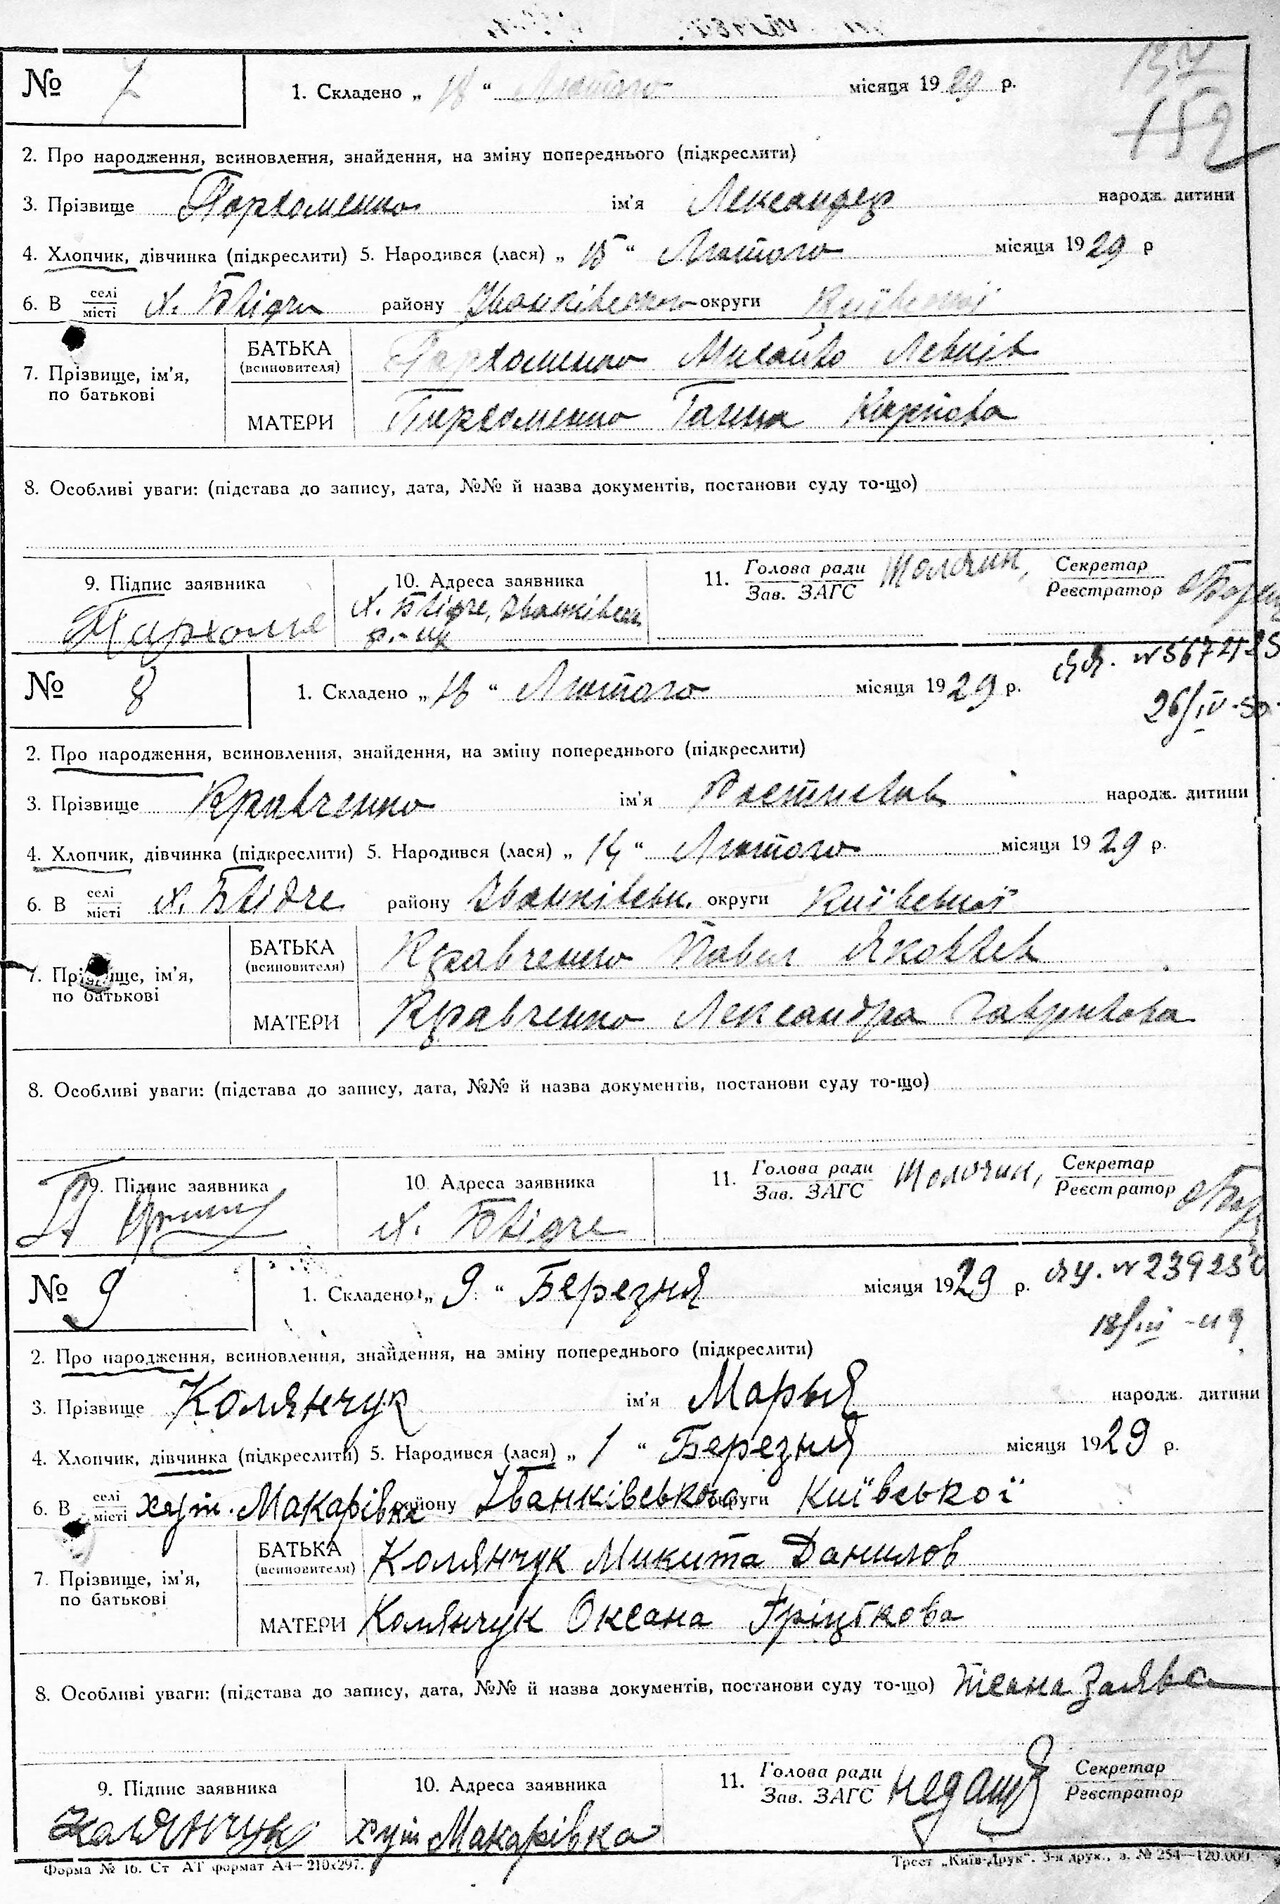 157
152
№ 7 1. Складено „ 18 “ Лютого місяця 1929 р.
2. Про народження, всиновлення, знайдення, на зміну попереднього (підкреслити)
3. Прізвище Пархоменко ім'я Лександер народж. дитини
4. Хлопчик, дівчинка (підкреслити) 5. Народився (лася) „ 15 “ Лютого місяця 1929 р
6. В селі місті х. району Іванківського округи Київської
7. Прізвище, ім'я, по батькові
БАТЬКА (всиновителя) Пархоменко Михайло Левків
МАТЕРИ Пархоменко Ганна Карпова
8. Особливі уваги: (підстава до запису, дата, №№ й назва документів, постанови суду то-що)
9. Підпис заявника 10. Адреса заявника 11. Голова ради Зав. ЗАГС Секретар Реєстратор
Пархоме х.
№ 8 1. Складено „ 18 “ Лютого місяця 1929 р.
26/IV-50
2. Про народження, всиновлення, знайдення, на зміну попереднього (підкреслити)
3. Прізвище Кравченко ім'я Ростислав народж. дитини
4. Хлопчик, дівчинка (підкреслити) 5. Народився (лася) „ 14 “ Лютого місяця 1929 р.
6. В селі місті х. району Іванківськ. округи Київської
7. Прізвище, ім'я, по батькові
БАТЬКА (всиновителя) Кравченко Павло Яковлев
МАТЕРИ Кравченко Лександра Гаврилова
8. Особливі уваги: (підстава до запису, дата, №№ й назва документів, постанови суду то-що)
9. Підпис заявника 10. Адреса заявника 11. Голова ради Зав. ЗАГС Секретар Реєстратор
х.
№ 9 1. Складено „ 9 “ Березня місяця 1929 р.
18/III-49
2. Про народження, всиновлення, знайдення, на зміну попереднього (підкреслити)
3. Прізвище Колянчук ім'я Марья народж. дитини
4. Хлопчик, дівчинка (підкреслити) 5. Народився (лася) „ 1 “ Березня місяця 1929 р.
6. В селі місті хут. Макарівка району Іванківського округи Київської
7. Прізвище, ім'я, по батькові
БАТЬКА (всиновителя) Колянчук Микита Данилов
МАТЕРИ Колянчук Оксана Гріцькова
8. Особливі уваги: (підстава до запису, дата, №№ й назва документів, постанови суду то-що) заява
9. Підпис заявника 10. Адреса заявника 11. Голова ради Зав. ЗАГС Секретар Реєстратор
Колянчук хут Макарівка
Форма № 16. Ст АТ формат А4—210х297. Трест „Київ-Друк“. 3-я друк., з. № 254—120.000.